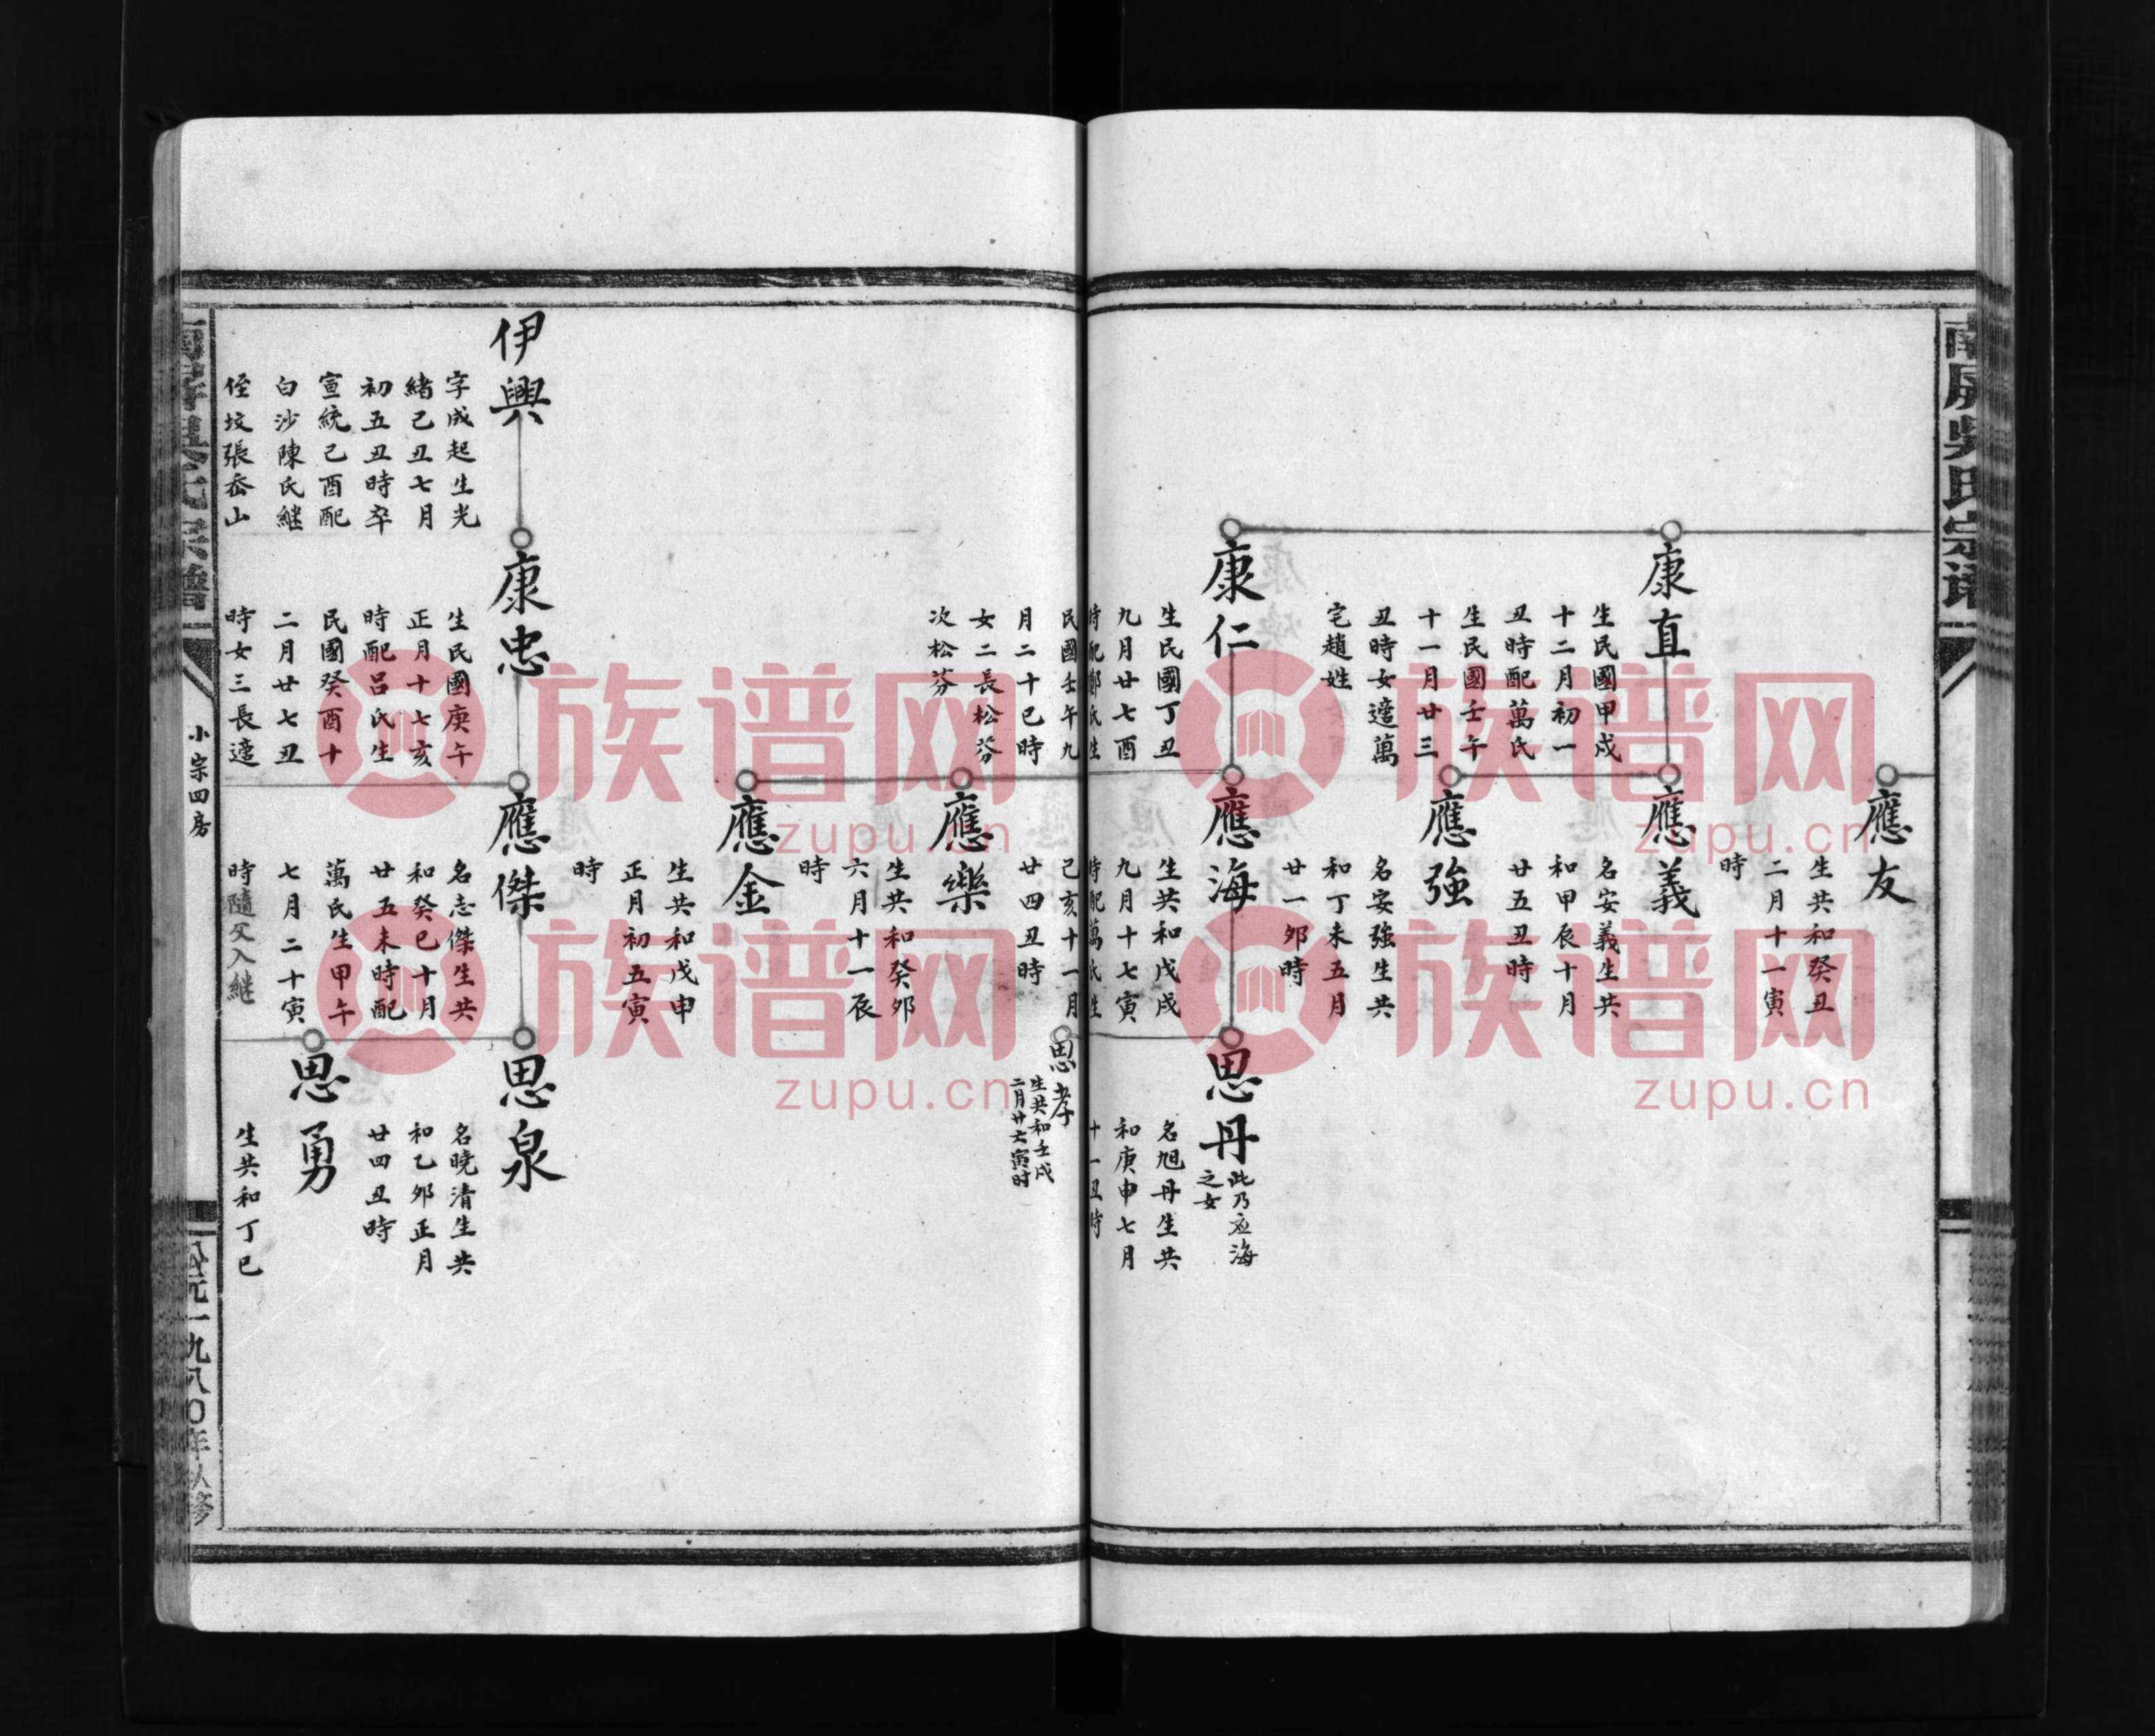 南屏吳氏宗譜
應友
生共和癸丑
二月十一寅
時
康直
生民國甲戌
十二月初一
丑時配萬氏
生民國壬午
十一月廿三
丑時女適萬
宅趙姓
應義
名安義生共
和甲辰十月
廿五丑時
應強
名安強生共
和丁未五月
廿一卯時
康仁
生民國丁丑
九月廿七酉
時配鄭氏生
民國壬午九
月二十巳時
女二長松芬
次松芬
應海
生共和戊戌
九月十七寅
時配萬氏生
己亥十一月
廿四丑時
思丹
此乃应海
之女
名旭丹生共
和庚申七月
十一丑時
思孝
生共和壬戌
二月廿六寅时
應樂
生共和癸卯
六月十一辰
時
應金
生共和戊申
正月初五寅
時
伊興
字成起生光
緒己丑七月
初五丑時卒
宣統己酉配
白沙陳氏継
侄坟張岙山
康忠
生民國庚午
正月十七亥
時配呂氏生
民國癸酉十
二月廿七丑
時女三長適
應傑
名志傑生共
和癸巳十月
廿五未時配
萬氏生甲午
七月二十寅
時隨父入継
思泉
名曉清生共
和乙卯正月
廿四丑時
思勇
生共和丁巳
小宗四房
公元一九八〇年
族谱网
zupu.cn
族谱网
zupu.cn
族谱网
zupu.cn
族谱网
zupu.cn